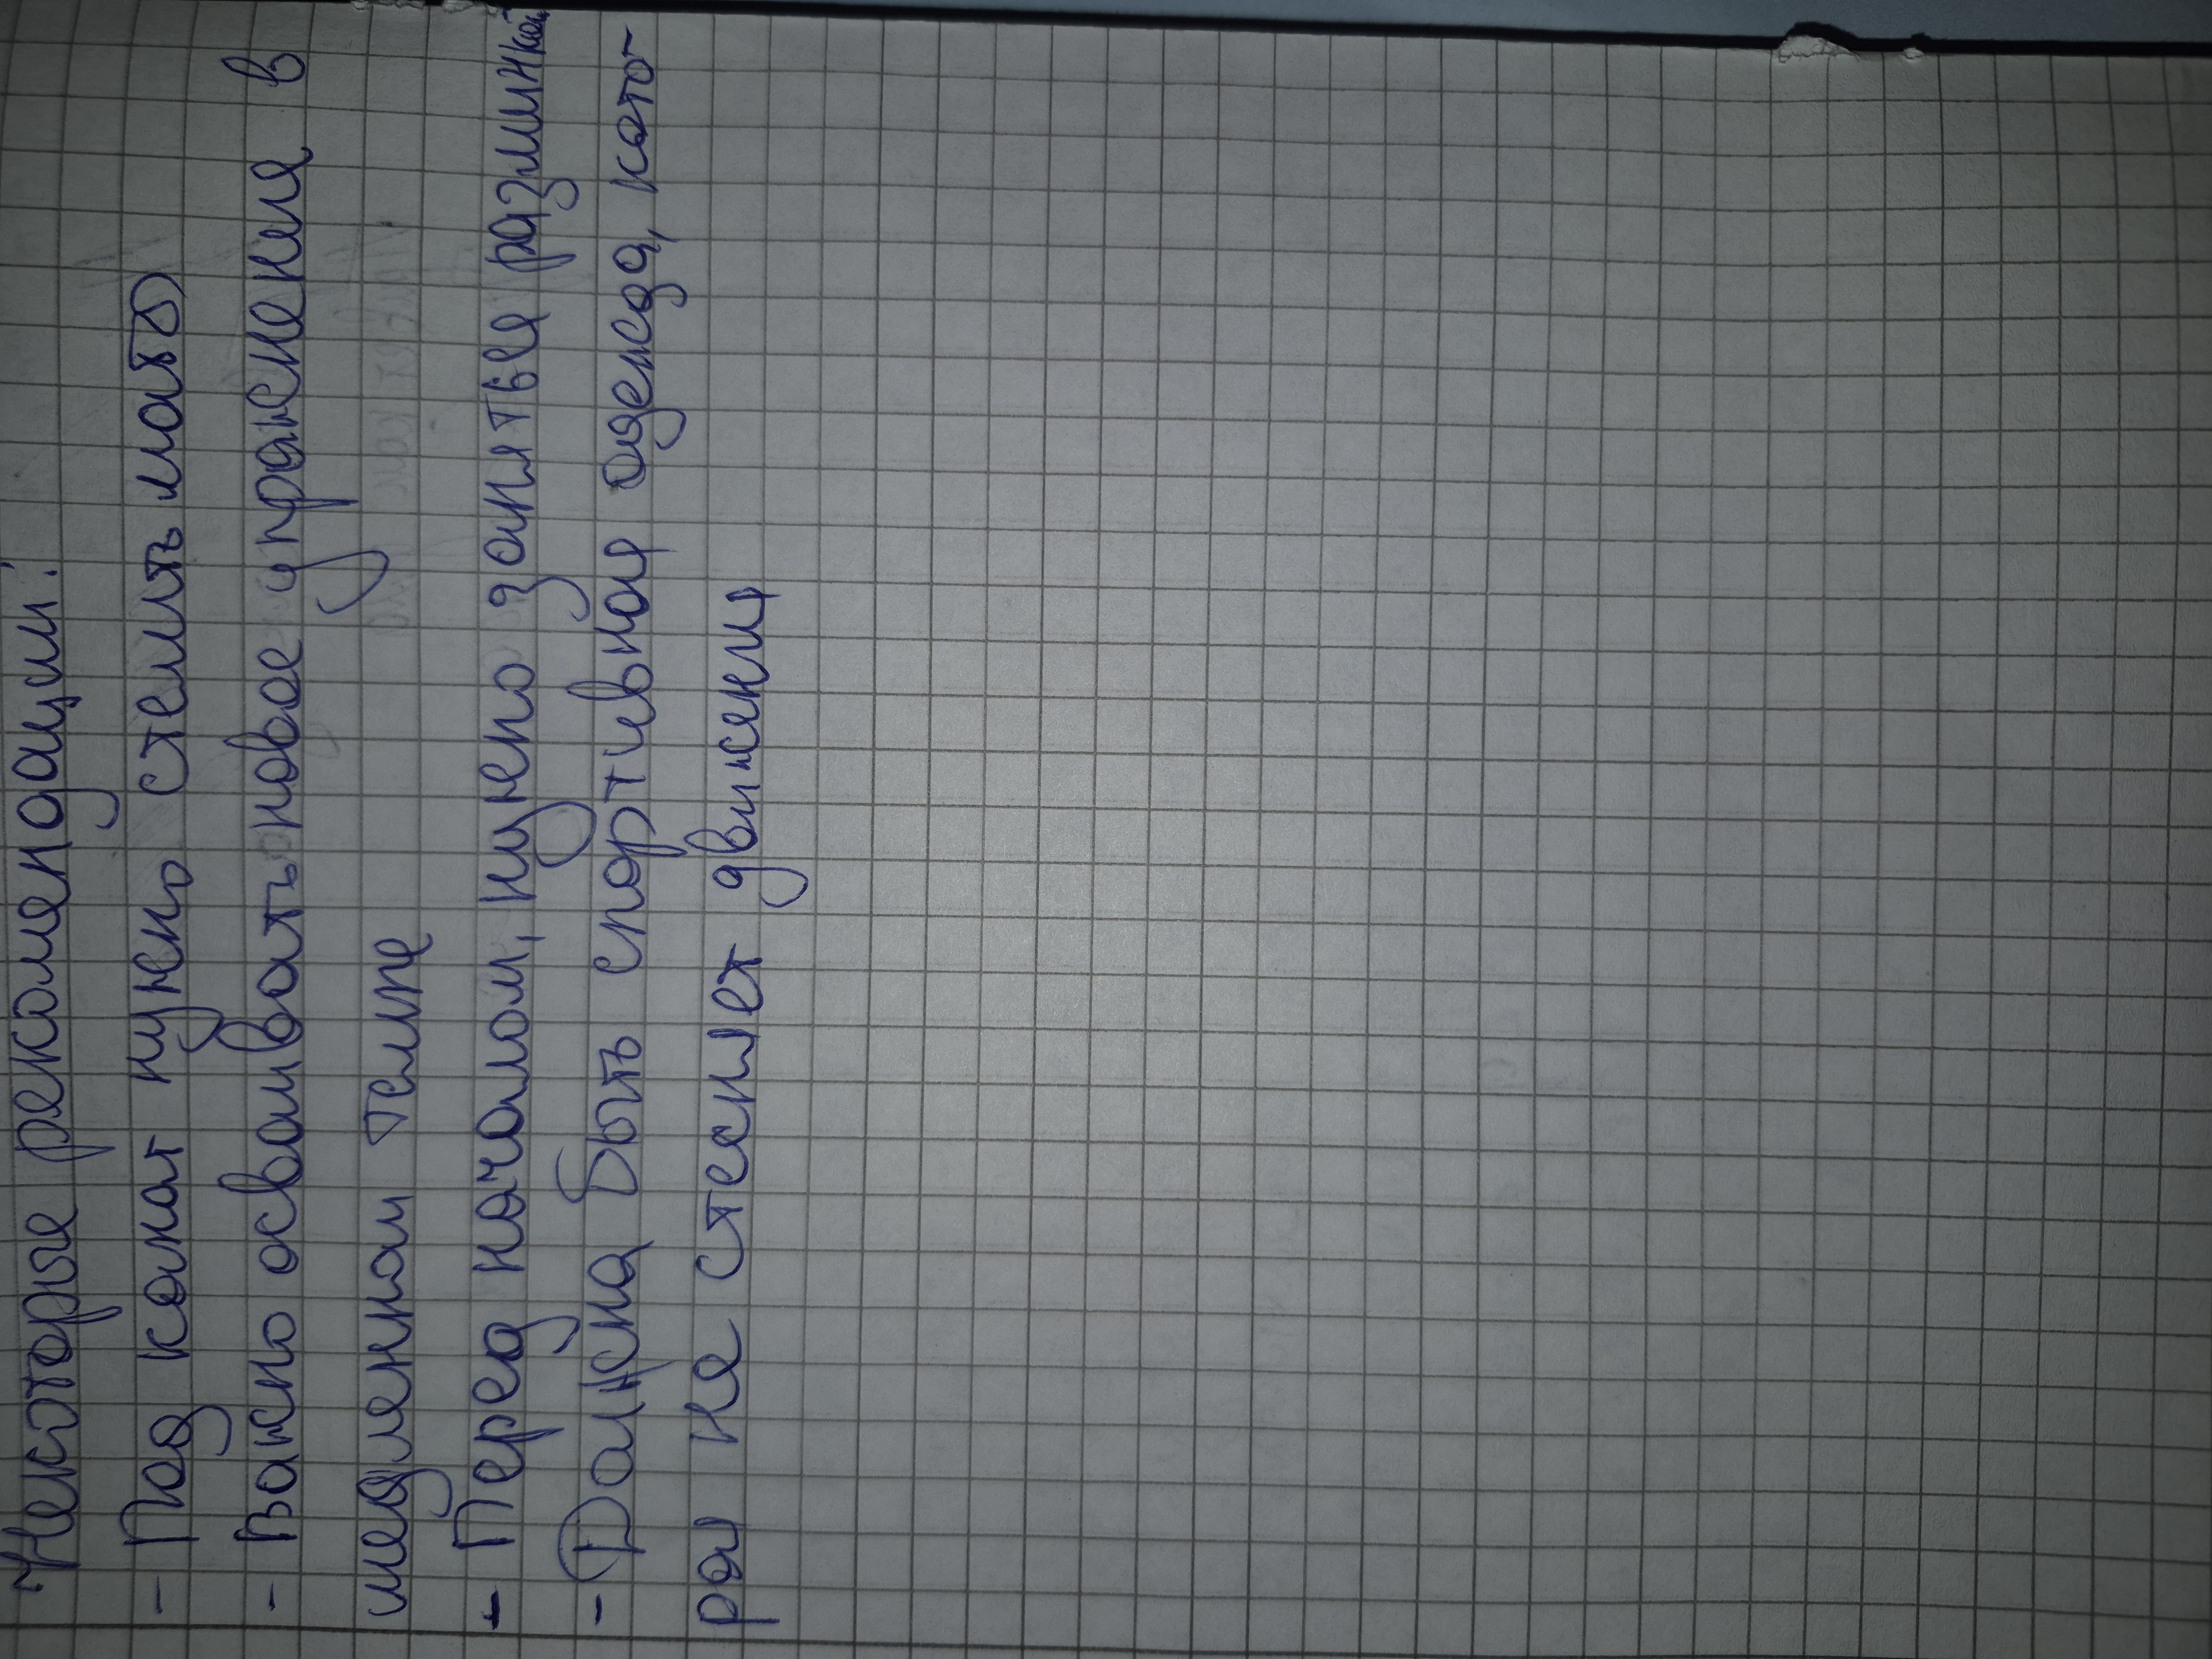 Некоторые рекомендации:
- Под канат нужно стелить маты
- Важно осваивать новое упражнения в
медленном темпе
- Перед началом, нужно заняться разминкой
- Должна быть спортивная одежда, кото-
рая не стесняет движения